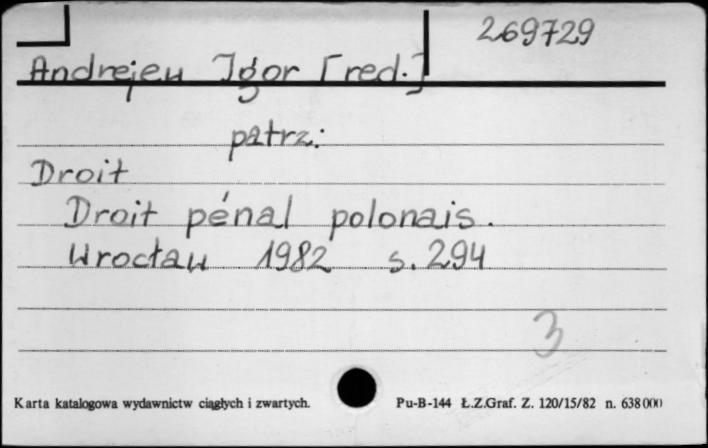 269729
Andrejew Igor [red.]
patrz:
Droit
Droit pénal polonais.
Wrocław 1982 s. 294
3
Karta katalogowa wydawnictw ciągłych i zwartych. Pu-B-144 Ł.Z.Graf. Z. 120/15/82 n. 638000